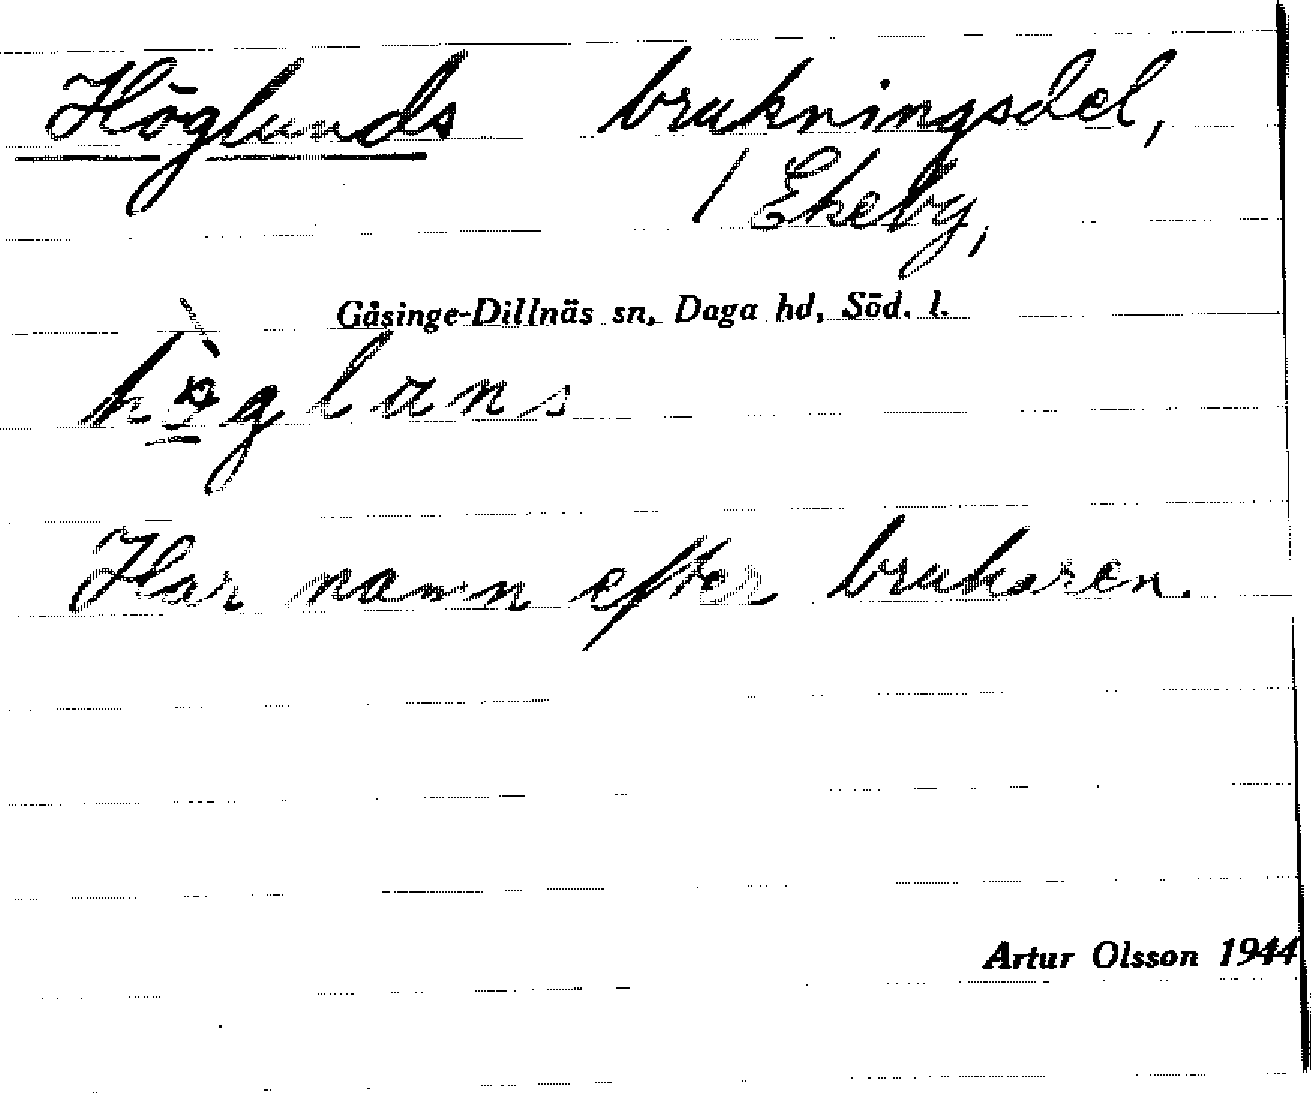 Höglunds brukningsdel,
/ Ekeby,
Gåsinge-Dillnäs sn, Daga hd, Söd. l.
hö̀glans
Har namn efter brukaren.
Artur Olsson 1944